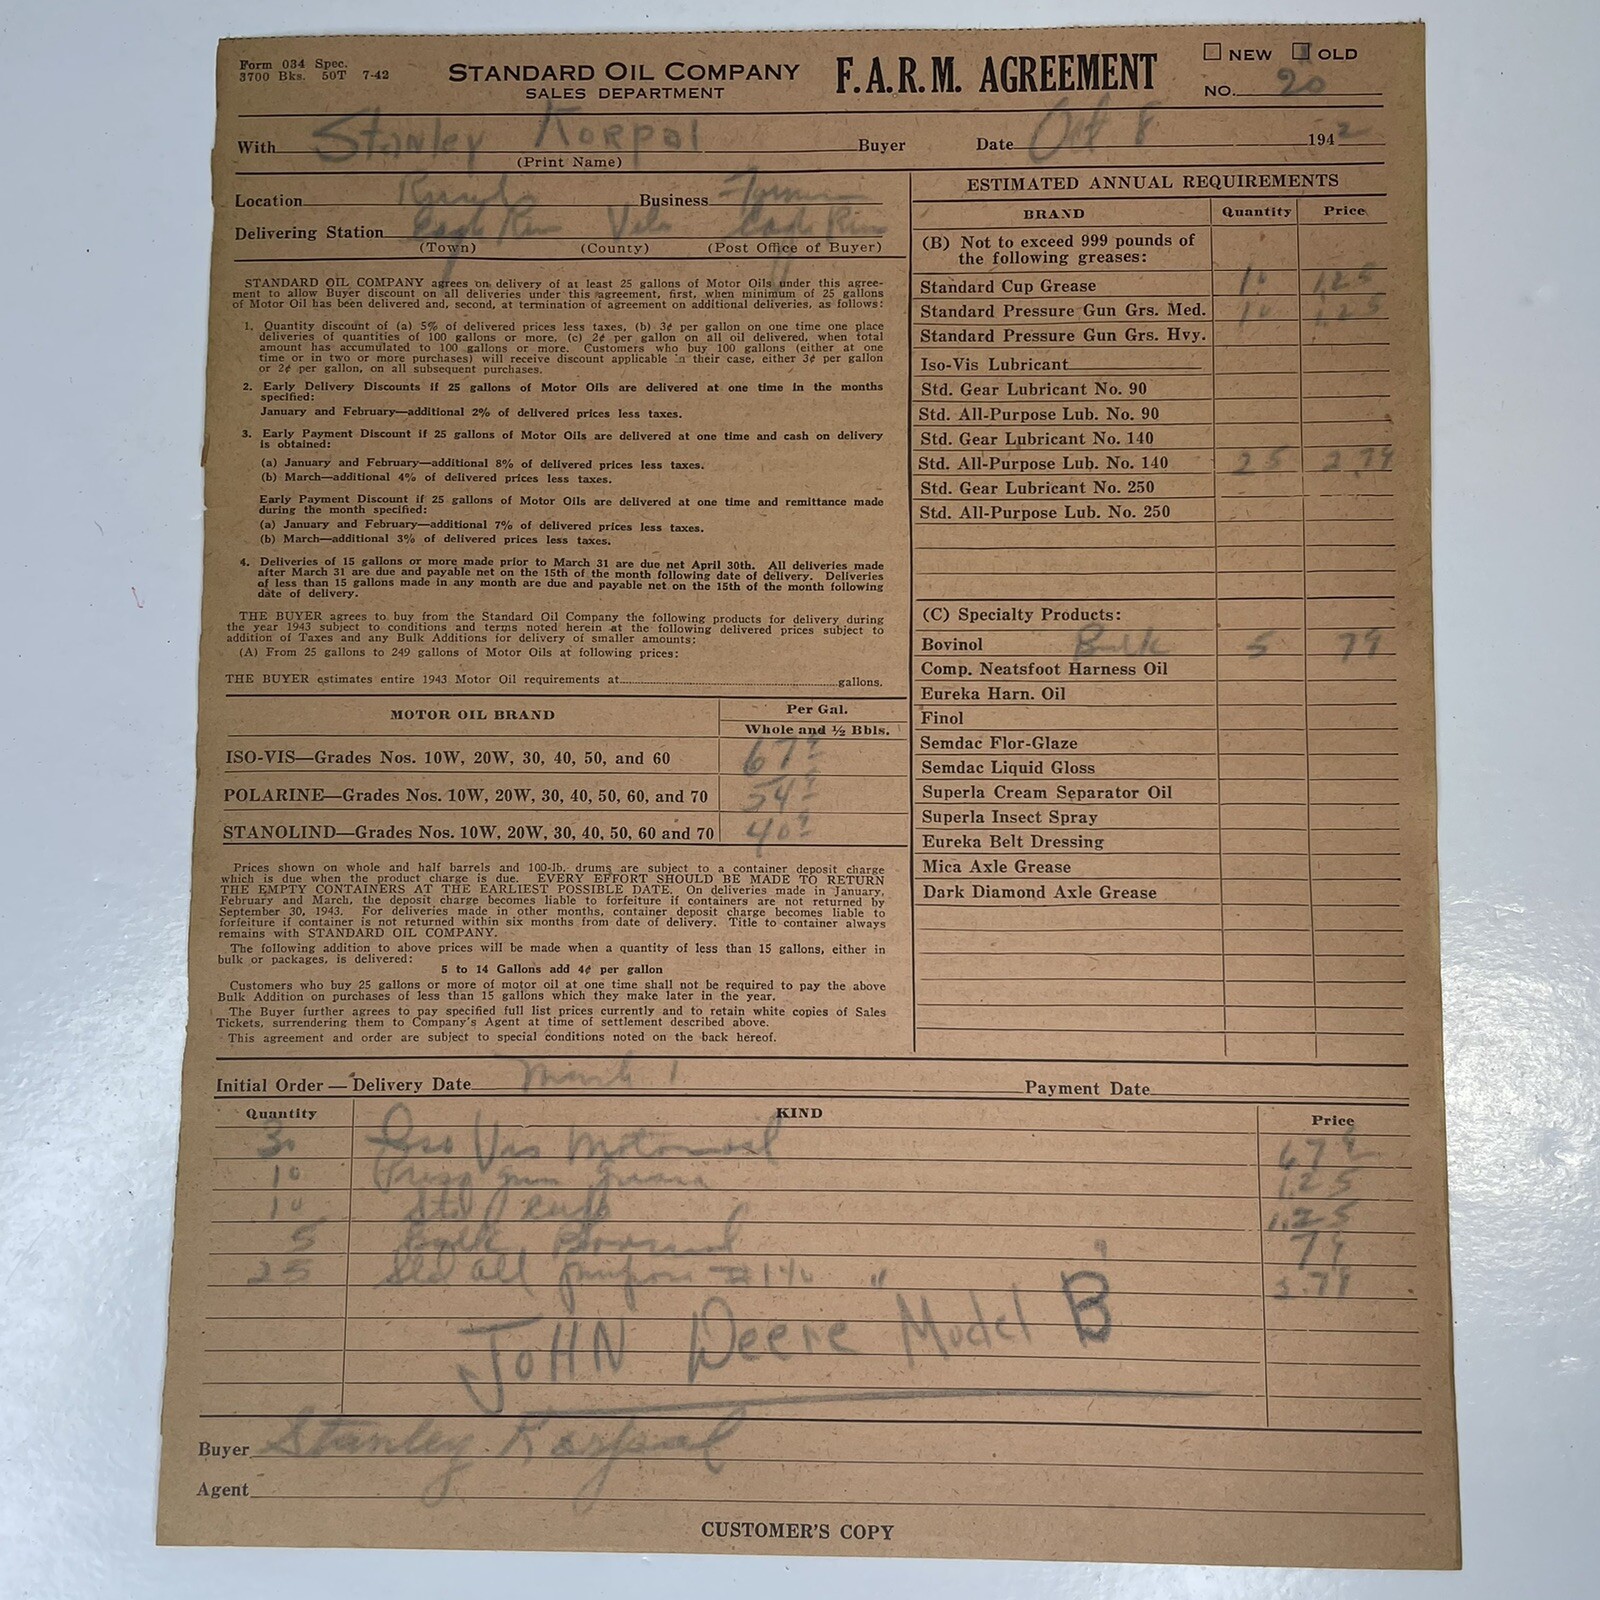 Form 034 Spec.
3700 Bks. 50T 7-42
STANDARD OIL COMPANY
SALES DEPARTMENT
F.A.R.M. AGREEMENT
NEW OLD
NO. 20
With Stanley Korpal Buyer Date Oct 8 1942
(Print Name)
Location Rural Business
Delivering Station Eagle River Vilas Eagle River
(Town) (County) (Post Office of Buyer)
STANDARD OIL COMPANY agrees on delivery of at least 25 gallons of Motor Oils under this agree-
ment to allow Buyer discount on all deliveries under this agreement, first, when minimum of 25 gallons
of Motor Oil has been delivered and, second, at termination of agreement on additional deliveries, as follows:
1. Quantity discount of (a) 5% of delivered prices less taxes, (b) 3¢ per gallon on one time one place
deliveries of quantities of 100 gallons or more, (c) 2¢ per gallon on all oil delivered, when total
amount has accumulated to 100 gallons or more. Customers who buy 100 gallons (either at one
time or in two or more purchases) will receive discount applicable in their case, either 3¢ per gallon
or 2¢ per gallon, on all subsequent purchases.
2. Early Delivery Discounts if 25 gallons of Motor Oils are delivered at one time in the months
specified:
January and February—additional 2% of delivered prices less taxes.
3. Early Payment Discount if 25 gallons of Motor Oils are delivered at one time and cash on delivery
is obtained:
(a) January and February—additional 8% of delivered prices less taxes.
(b) March—additional 4% of delivered prices less taxes.
Early Payment Discount if 25 gallons of Motor Oils are delivered at one time and remittance made
during the month specified:
(a) January and February—additional 7% of delivered prices less taxes.
(b) March—additional 3% of delivered prices less taxes.
4. Deliveries of 15 gallons or more made prior to March 31 are due net April 30th. All deliveries made
after March 31 are due and payable net on the 15th of the month following date of delivery. Deliveries
of less than 15 gallons made in any month are due and payable net on the 15th of the month following
date of delivery.
THE BUYER agrees to buy from the Standard Oil Company the following products for delivery during
the year 1943 subject to conditions and terms noted herein at the following delivered prices subject to
addition of Taxes and any Bulk Additions for delivery of smaller amounts:
(A) From 25 gallons to 249 gallons of Motor Oils at following prices:
THE BUYER estimates entire 1943 Motor Oil requirements at gallons.
MOTOR OIL BRAND Per Gal.
Whole and ½ Bbls.
ISO-VIS—Grades Nos. 10W, 20W, 30, 40, 50, and 60 67⁹
POLARINE—Grades Nos. 10W, 20W, 30, 40, 50, 60, and 70 54⁹
STANOLIND—Grades Nos. 10W, 20W, 30, 40, 50, 60 and 70 40⁹
Prices shown on whole and half barrels and 100-lb. drums are subject to a container deposit charge
which is due when the product charge is due. EVERY EFFORT SHOULD BE MADE TO RETURN
THE EMPTY CONTAINERS AT THE EARLIEST POSSIBLE DATE. On deliveries made in January,
February and March, the deposit charge becomes liable to forfeiture if containers are not returned by
September 30, 1943. For deliveries made in other months, container deposit charge becomes liable to
forfeiture if container is not returned within six months from date of delivery. Title to container always
remains with STANDARD OIL COMPANY.
The following addition to above prices will be made when a quantity of less than 15 gallons, either in
bulk or packages, is delivered:
5 to 14 Gallons add 4¢ per gallon
Customers who buy 25 gallons or more of motor oil at one time shall not be required to pay the above
Bulk Addition on purchases of less than 15 gallons which they make later in the year.
The Buyer further agrees to pay specified full list prices currently and to retain white copies of Sales
Tickets, surrendering them to Company's Agent at time of settlement described above.
This agreement and order are subject to special conditions noted on the back hereof.
ESTIMATED ANNUAL REQUIREMENTS
BRAND Quantity Price
(B) Not to exceed 999 pounds of
the following greases:
Standard Cup Grease 10 1.25
Standard Pressure Gun Grs. Med. 10 1.25
Standard Pressure Gun Grs. Hvy.
Iso-Vis Lubricant
Std. Gear Lubricant No. 90
Std. All-Purpose Lub. No. 90
Std. Gear Lubricant No. 140
Std. All-Purpose Lub. No. 140 25 2.79
Std. Gear Lubricant No. 250
Std. All-Purpose Lub. No. 250
(C) Specialty Products:
Bovinol Bulk 5 79
Comp. Neatsfoot Harness Oil
Eureka Harn. Oil
Finol
Semdac Flor-Glaze
Semdac Liquid Gloss
Superla Cream Separator Oil
Superla Insect Spray
Eureka Belt Dressing
Mica Axle Grease
Dark Diamond Axle Grease
Initial Order — Delivery Date March 1 Payment Date
Quantity KIND Price
30 Iso Vis Motor oil 67⁹
10 Press gun grease 1.25
10 Std cup 1.25
5 Bulk Bovinol 79
25 Std all purpose #140 "
JOHN Deere Model B
Buyer Stanley Korpal
Agent
CUSTOMER'S COPY